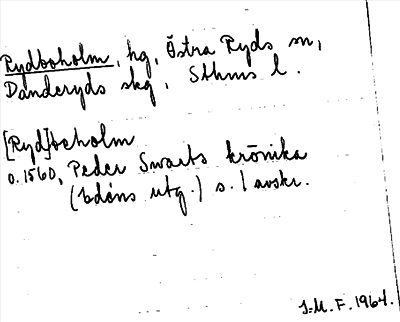 Rydboholm, hg, Östra Ryds sn,
Danderyds skg, Sthms l.
[Ryd]boholm
o. 1560, Peder Swarts krönika
(Edéns utg.) s. 1 avskr.
J-M. F. 1964.